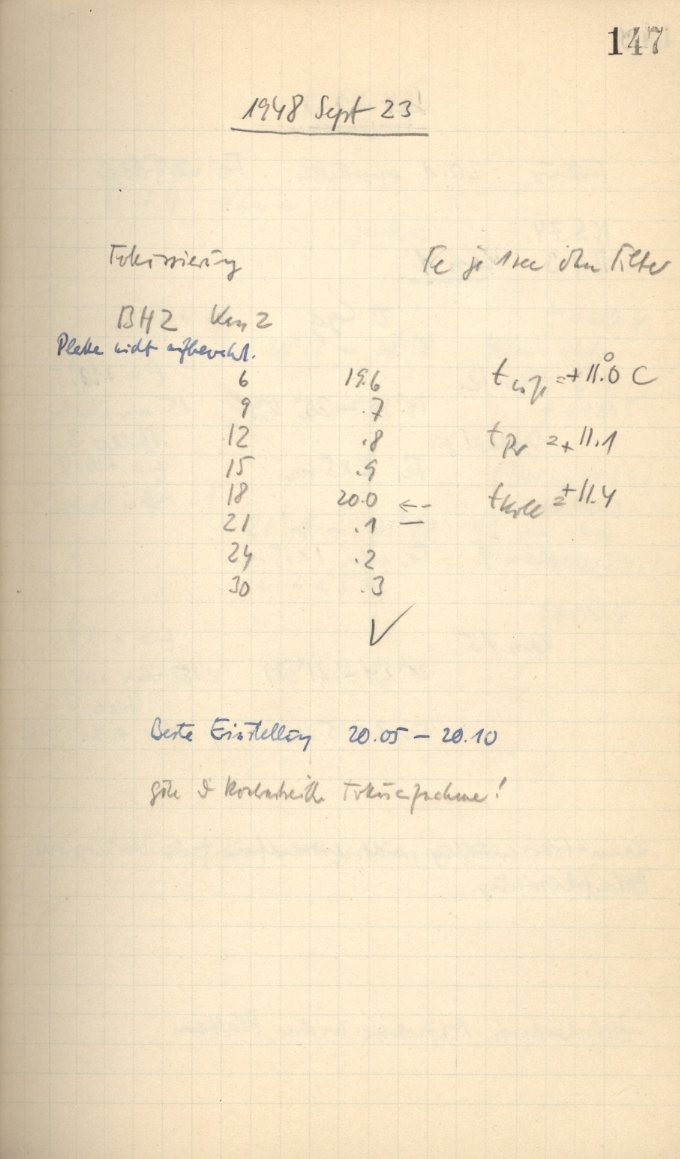 147
1948 Sept 23
Fokussierung Fe je 1sec ohne Filter
BH2 Kam 2
Platte nicht aufbewahrt.
6 19.6
9 .7
12 .8
15 .9
18 20.0 ←--
21 .1 —
24 .2
30 .3
t = +11.0° C
tPr = +11.1
tKoll = +11.4
✓
Beste Einstellung 20.05 – 20.10
gute Fokusaufnahme!